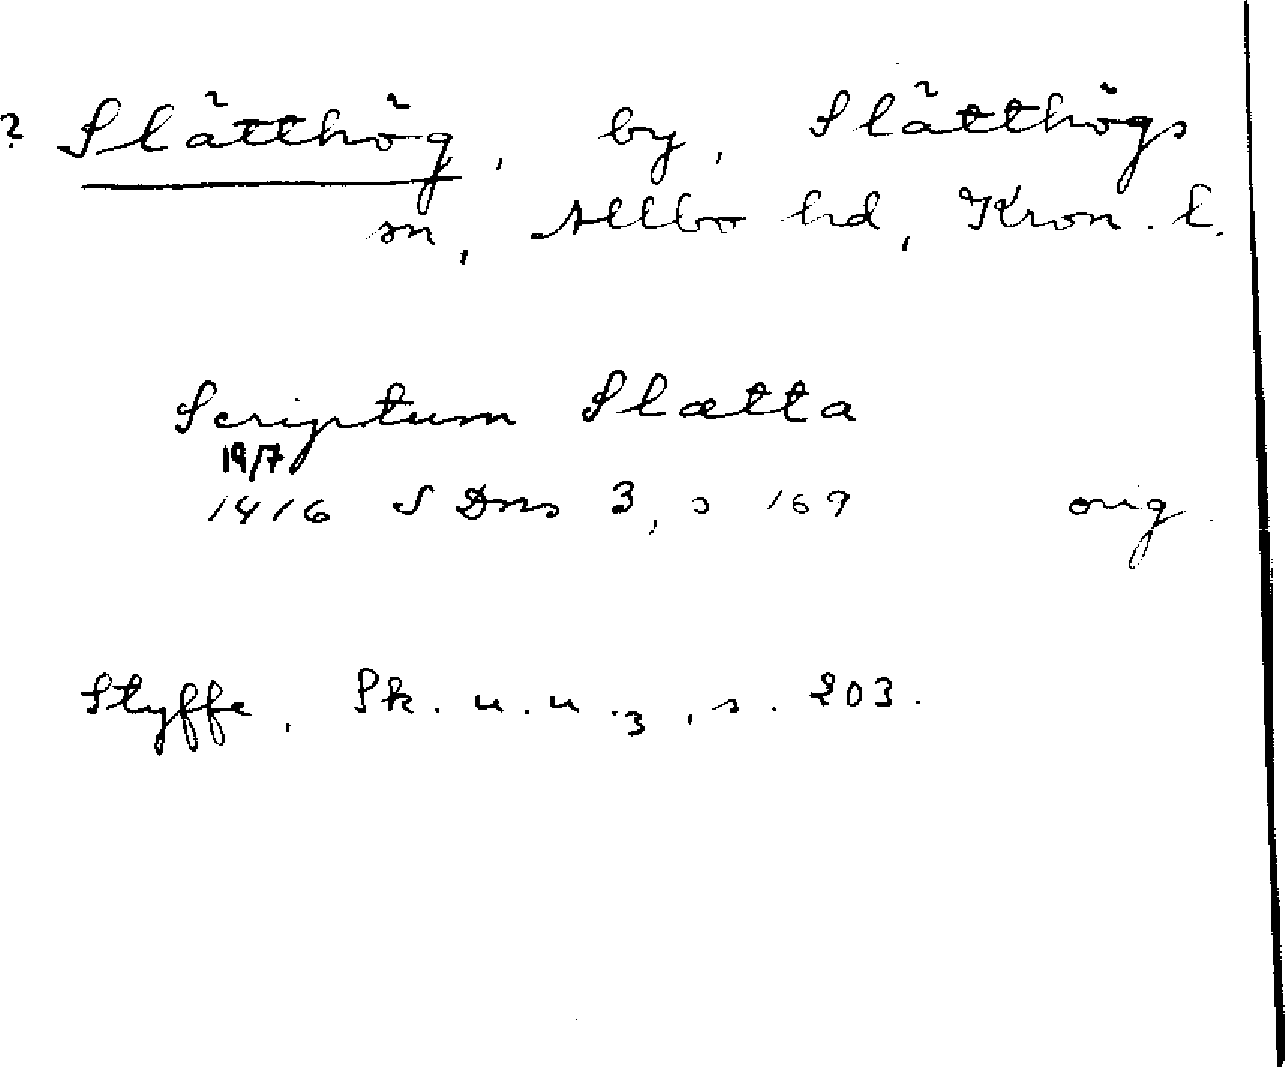 ? Slätthög, by, Slätthögs
sn, Allbo hd, Kron. l.
Scriptum Slætta
19/7
1416 S Dns 3, s 169 orig
Styffe, Sk. u. u. 3, s. 203.